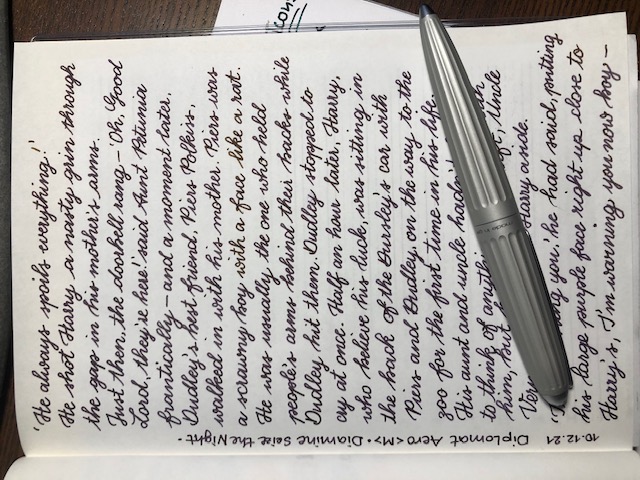 'He always spoils everything!'
He shot Harry a nasty grin through
the gap in his mother's arms.
Just then, the doorbell rang – 'Oh, Good
Lord, they're here!' said Aunt Petunia
frantically – and a moment later,
Dudley's best friend, Piers Polkiss,
walked in with his mother. Piers was
a scrawny boy with a face like a rat.
He was usually the one who held
people's arms behind their backs while
Dudley hit them. Dudley stopped to
cry at once. Half an hour later, Harry,
who believe his luck, was sitting in
the back of the Dursley's car with
Piers and Dudley, on the way to the
zoo for the first time in his life.
His aunt and uncle hadn't
to think of
him, but Uncle
Harry aside.
you,' he had said, putting
his large purple face right up close to
Harry's, 'I'm warning you now boy –
10.12.21 Diplomat Aero <M> • Diamine Seize the Night •